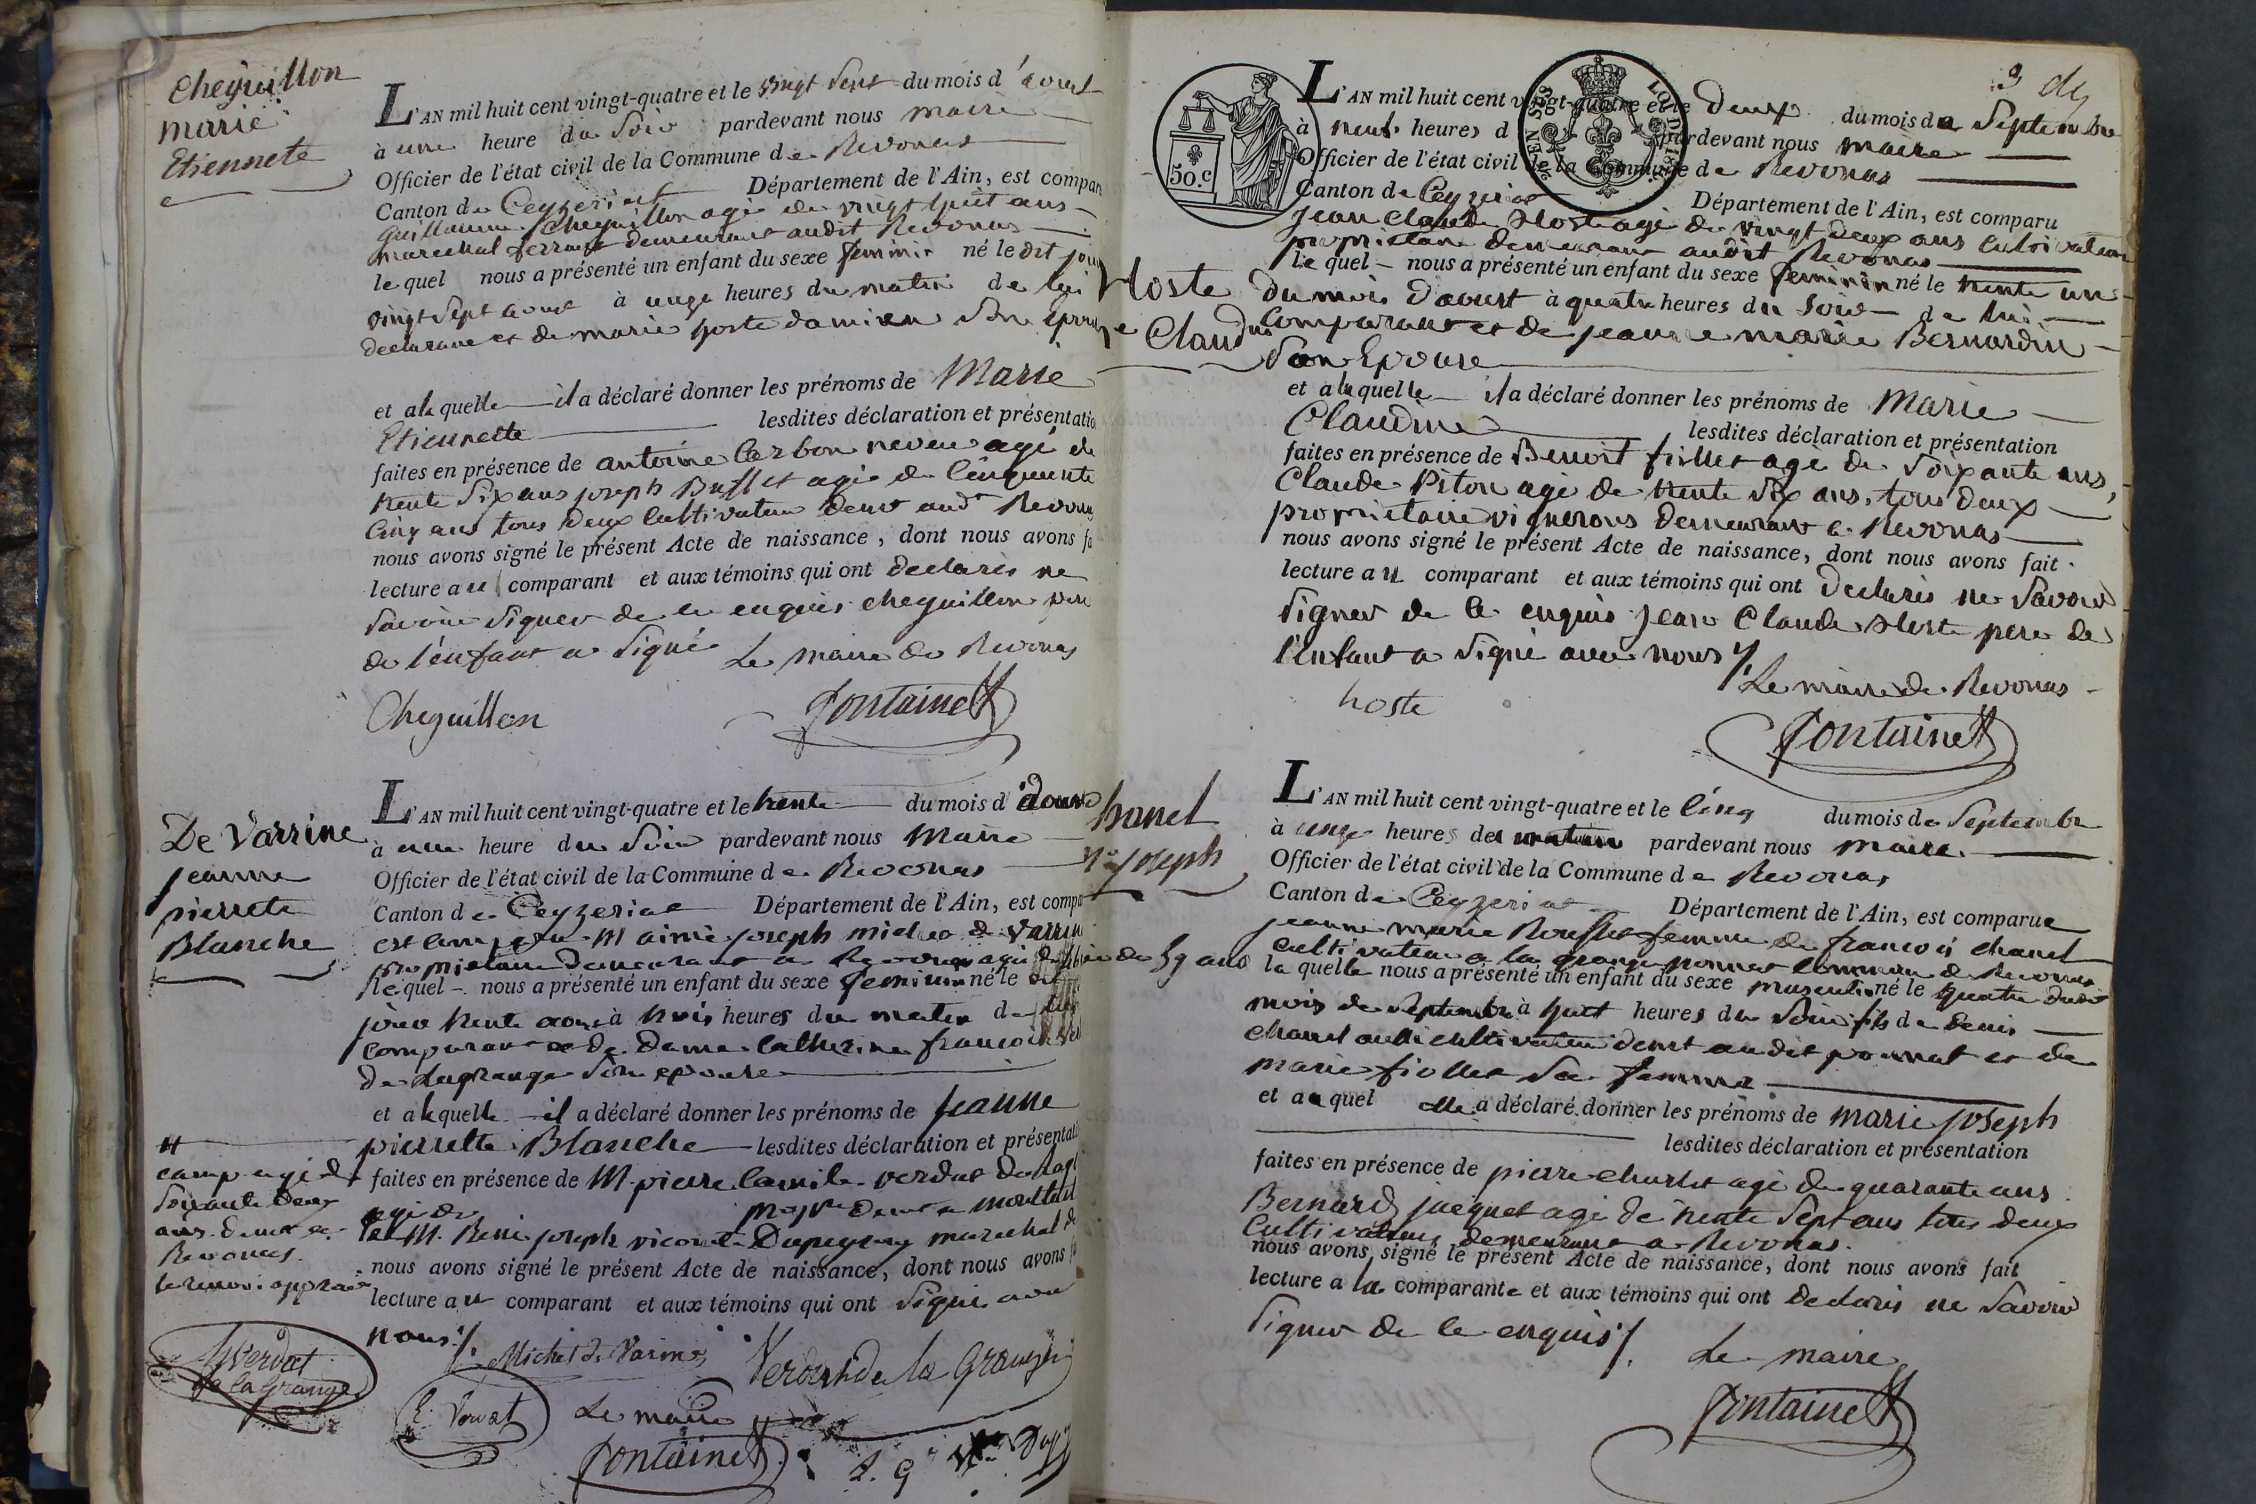 Cheguillon
marie
Etiennete
L'AN mil huit cent vingt-quatre et le vingt Sept du mois d'aoust
à une heure du Soir pardevant nous maire
Officier de l'état civil de la Commune de Revonas
Canton de Ceyzeriat Département de l'Ain, est compar
Guillaume Cheguillon agé de vingt huit ans
marechal ferrant demeurant audit Revonas
le quel nous a présenté un enfant du sexe feminin né le dit jour
vingt Sept aout à onze heures du matin de lui
declarant et de marie hoste damien Son Epouse
et a la quelle il a déclaré donner les prénoms de Marie
Etiennette lesdites déclaration et présentatio
faites en présence de antoine Carbon neveu agé de
trente Six ans joseph Buffet agé de Cinquante
Cinq ans tous deux Cultivateur demt audt Revonas
nous avons signé le présent Acte de naissance, dont nous avons fa
lecture au comparant et aux témoins qui ont declarés ne
Savoir Signer de ce enquis cheguillon pere
de l'enfant a Signé Le maire de Revonas
Cheguillon Fontainet
De Varrine
jeanne
pierrete
Blanche
L'AN mil huit cent vingt-quatre et le trente du mois d'aoust
à une heure du Soir pardevant nous Maire
Officier de l'état civil de la Commune de Revonas
Canton de Ceyzeriat Département de l'Ain, est compa
est comparu M aimé joseph michel de Varrine
propriétaire demeurant a Revonas agé de
le quel nous a présenté un enfant du sexe feminin né le dit
jour trente aout à trois heures du matin de lui
comparant et de Dame Catherine francoise Ver
de Lagrange Son epouse
et a la quelle il a déclaré donner les prénoms de jeanne
pierrette Blanche lesdites déclaration et présentati
faites en présence de M. pierre Camile verdat de Lag
agé de propre demt a montluel
et M. René joseph vicomte Dupeyroux marechal de
camp agé de
Soixante deux
ans demt a
Revonas
le renvoi approuvé
nous avons signé le présent Acte de naissance, dont nous avons f
lecture au comparant et aux témoins qui ont Signé avec
nous
Michel de Varine Verdat de la Grange
Verdat
de la Grange
Verdat Le maire
Fontainet
50.c
L'AN mil huit cent vingt-quatre et le Deux du mois de Septembre
à neuf heures d pardevant nous maire
Officier de l'état civil de la Commune de Revonas
Canton de Ceyzeriat Département de l'Ain, est comparu
Jean Claude Hoste agé de vingt deux ans Cultivateur
propriétaire demeurant audit Revonas
le quel nous a présenté un enfant du sexe feminin né le trente un
Hoste
Claudne
du mois d'aoust à quatre heures du Soir de lui
Comparant et de jeanne marie Bernardin
Son Epouse
et a la quelle il a déclaré donner les prénoms de Marie
Claudine lesdites déclaration et présentation
faites en présence de Benoit fiollet agé de Soixante ans,
Claude Piton agé de trente Six ans, tous deux
proprietaire vignerons demeurant a Revonas
nous avons signé le présent Acte de naissance, dont nous avons fait
lecture au comparant et aux témoins qui ont Declarés ne Savoir
Signer de ce enquis Jean Claude Hoste pere de
l'enfant a Signé avec nous
Le maire de Revonas
hoste
Fontainet
hanel
joseph
L'AN mil huit cent vingt-quatre et le Cinq du mois de Septembre
à onze heures du matin pardevant nous maire
Officier de l'état civil de la Commune de Revonas
Canton de Ceyzeriat Département de l'Ain, est comparue
jeanne marie Rousset femme de francois chanel
Cultivateur a la grange ponnat commune de Revonas
de 39 ans la quelle nous a présenté un enfant du sexe masculin né le quatre dudit
mois de Septembre à huit heures du Soir fils de denis
chanel aussi cultivateur demt audit ponnat et de
marie fiollet Sa femme
et auquel elle a déclaré donner les prénoms de marie joseph
lesdites déclaration et présentation
faites en présence de pierre Charlet agé de quarante ans
Bernard jacquet agé de trente Sept ans tous deux
Cultivateurs demeurant a Revonas
nous avons signé le présent Acte de naissance, dont nous avons fait
lecture a la comparante et aux témoins qui ont declarés ne Savoir
Signer de ce enquis
Le maire
Fontainet